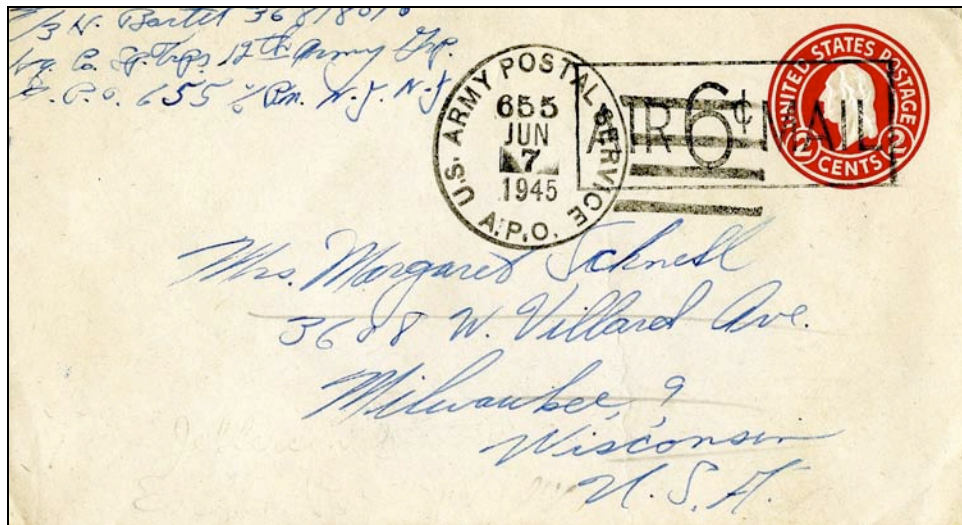 T/3 W. Bartel 36818010
Hq. Co. Sp. Trps. 12th Army Grp.
A. P. O. 655 % Pm. N.Y. N.Y
U.S. ARMY POSTAL SERVICE
655
JUN
7
1945
A.P.O.
AIR 6¢ MAIL
UNITED STATES POSTAGE
2 CENTS 2
Mrs. Margaret Schnell
3688 W. Villard Ave.
Milwaukee, 9
Wisconsin
U. S. A.